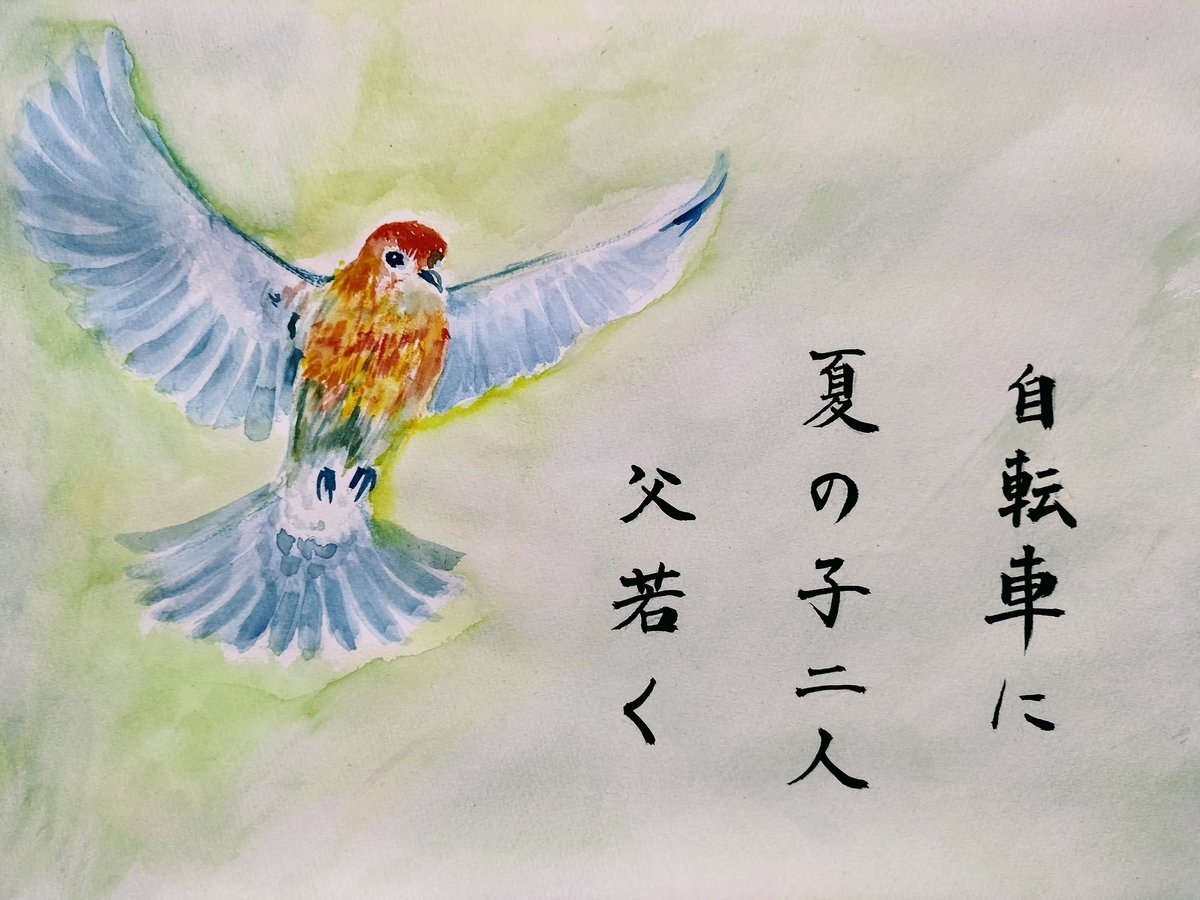 自転車に
夏の子二人
父若く